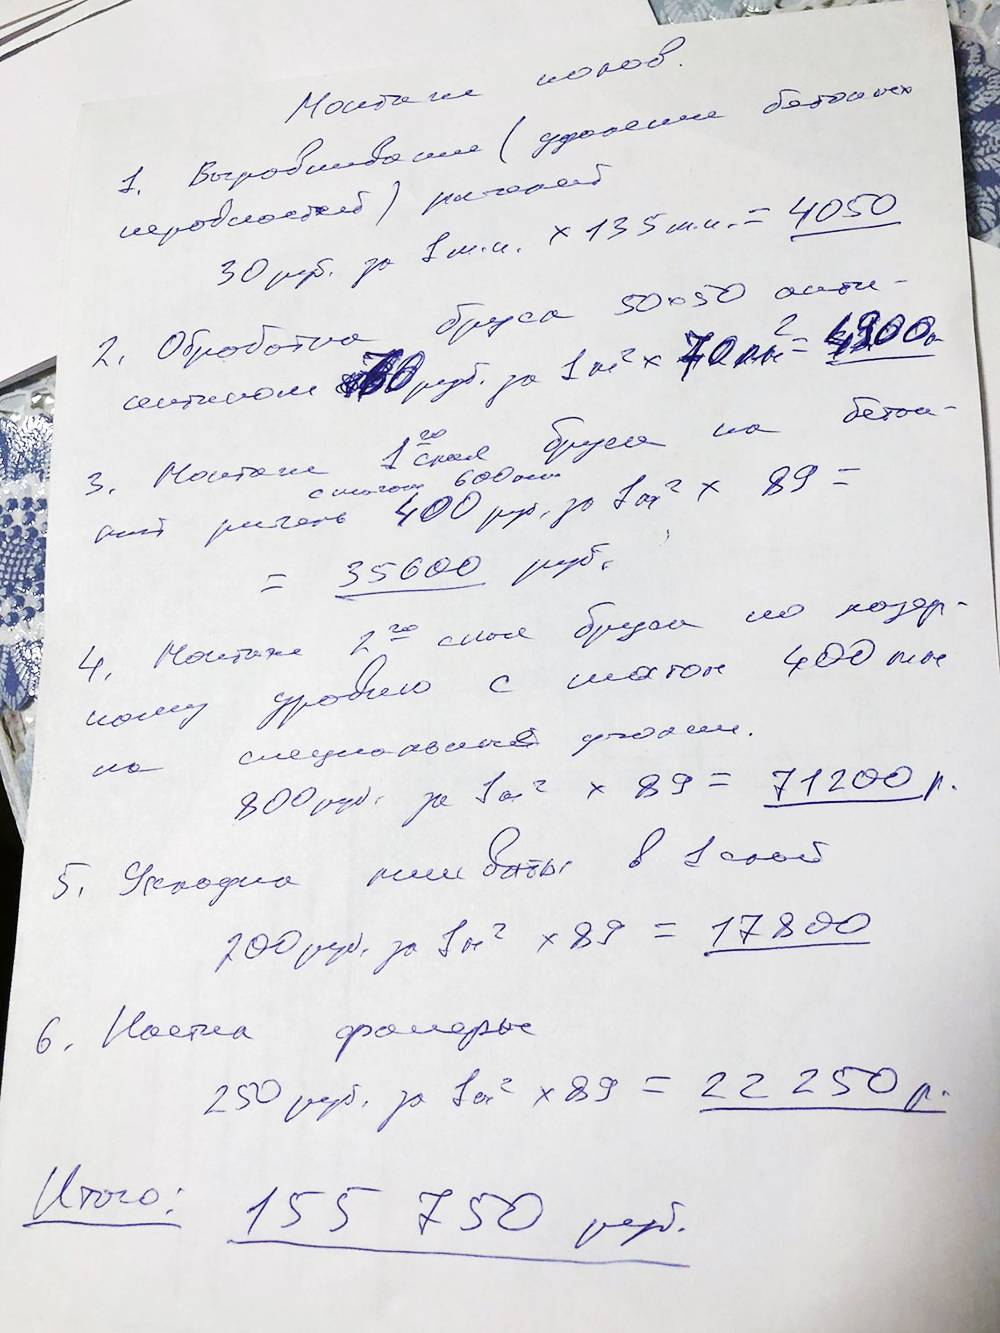 Монтаж полов.
1. Выравнивание (удаление бетонных
неровностей) ригелей
30 руб. за 1 м.п. × 135 м.п. = 4050
2. Обработка бруса 50×50 анти-
септиком 70 руб. за 1 м² × 70 м² = 4900р
3. Монтаж 1го слоя бруса на бетон-
с шагом 600мм
ный ригель 400 руб. за 1 м² × 89 =
= 35600 руб.
4. Монтаж 2го слоя бруса по лазер-
ному уровню с шагом 400 мм
на специальный
800 руб. за 1 м² × 89 = 71200 р.
5. Укладка мин ваты в 1 слой
200 руб. за 1 м² × 89 = 17800
6. Настил фанеры
250 руб. за 1 м² × 89 = 22 250 р.
Итого: 155 750 руб.